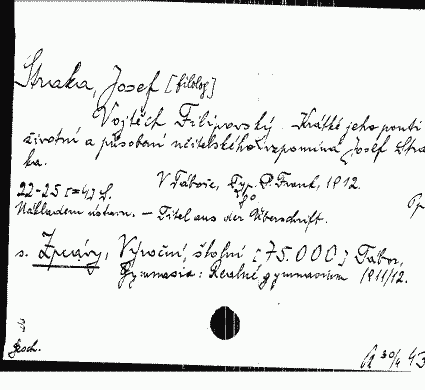 Straka, Josef [filolog]
Vojtěch Filipovský. Krátké jeho pouti
životní a působení učitelského vzpomíná Josef Stra
ka.
V Táboře, Typ. P. Frank, 1912.
22-25 [=4] S. 8°
Nákladem ústavu. — Titel aus der Überschrift.
s. Zprávy, Výroční, školní [75.000] Tábor,
Gymnasia: Reálné gymnasium 1911/12.
Gesch.
30/4 43